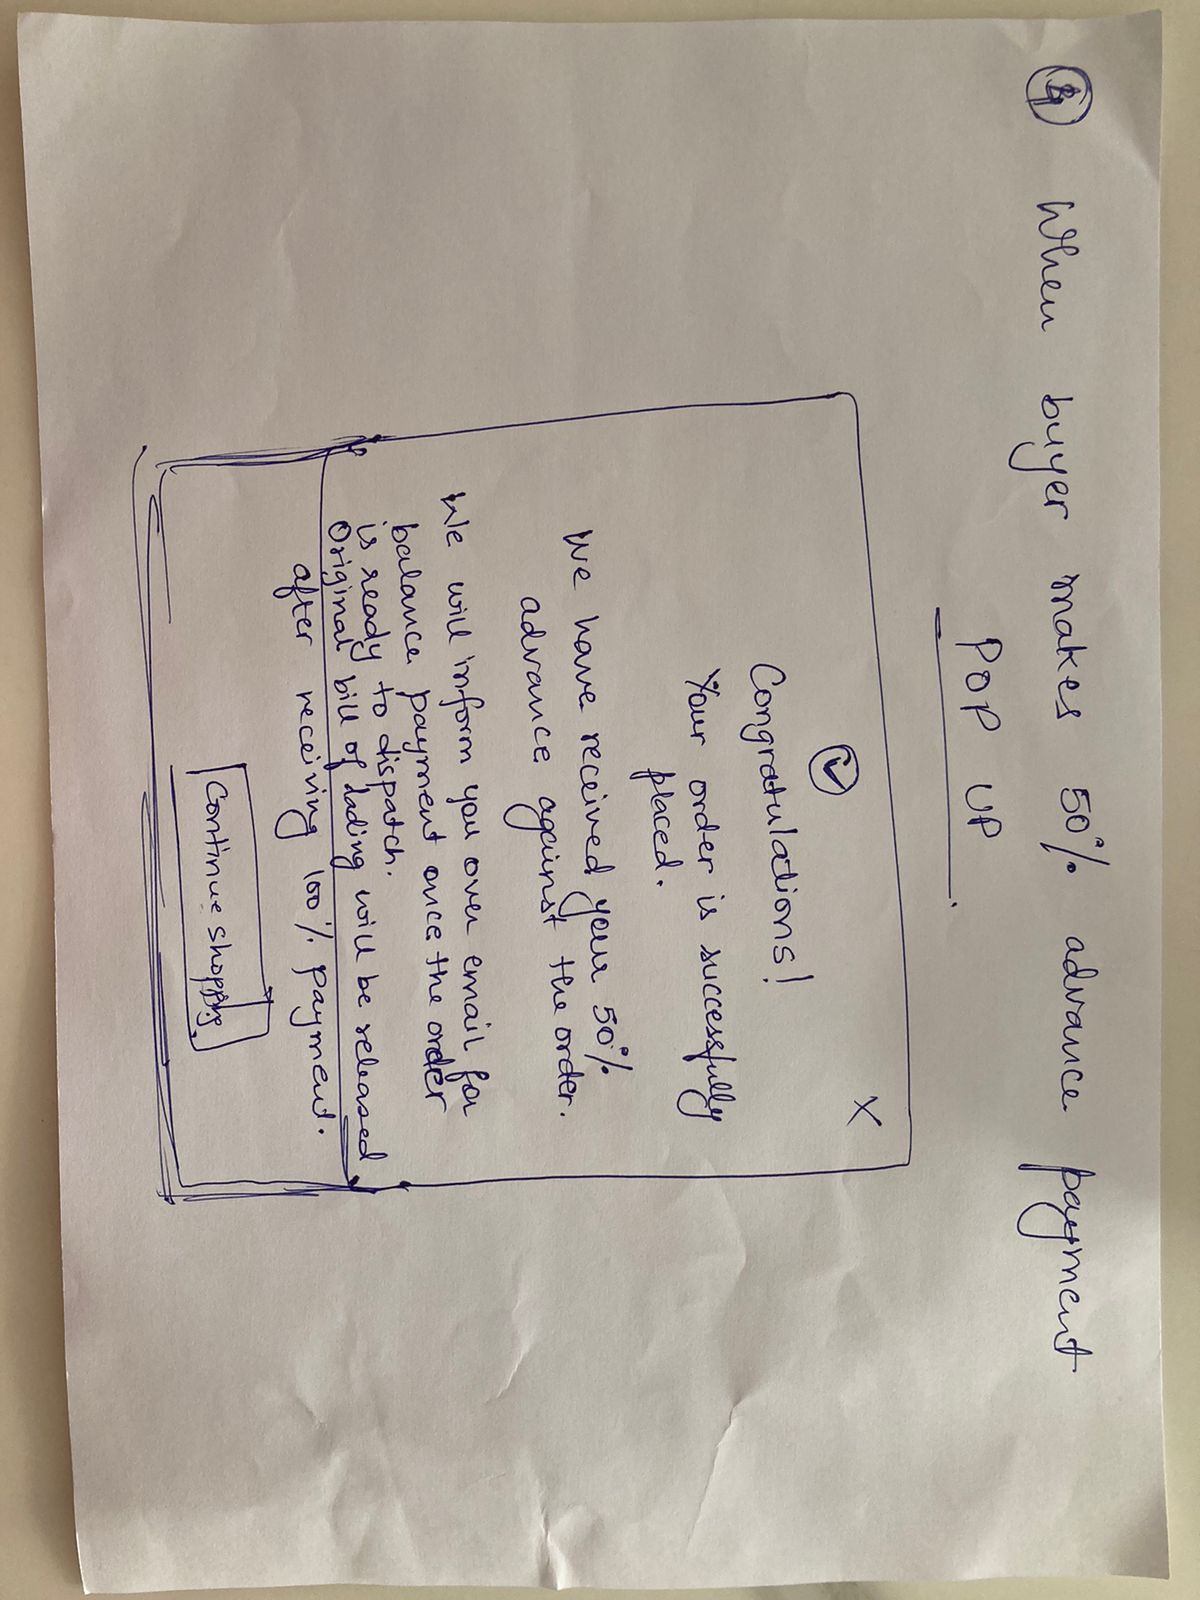 When buyer makes 50% advance payment
POP UP
X
Congratulations!
Your order is successfully
placed.
We have received your 50%
advance against the order.
We will inform you over email for
balance payment once the order
is ready to dispatch.
Original bill of lading will be released
after receiving 100% payment.
Continue shopping